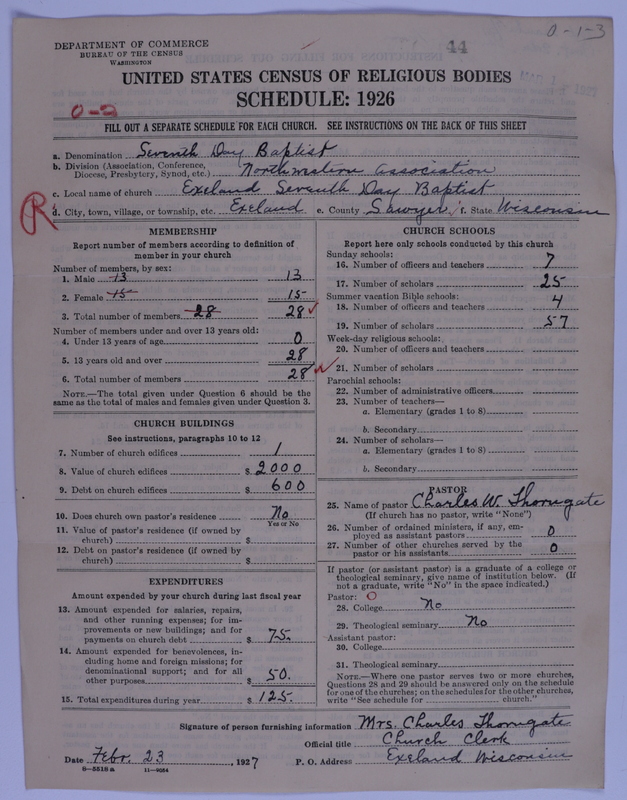 0-1-3
DEPARTMENT OF COMMERCE
BUREAU OF THE CENSUS
WASHINGTON
44
UNITED STATES CENSUS OF RELIGIOUS BODIES
SCHEDULE: 1926
0-2
FILL OUT A SEPARATE SCHEDULE FOR EACH CHURCH. SEE INSTRUCTIONS ON THE BACK OF THIS SHEET
a. Denomination Seventh Day Baptist
b. Division (Association, Conference, Diocese, Presbytery, Synod, etc.) Northwestern Association
c. Local name of church Exeland Seventh Day Baptist
R
d. City, town, village, or township, etc. Exeland e. County Sawyer f. State Wisconsin
MEMBERSHIP
Report number of members according to definition of
member in your church
Number of members, by sex:
1. Male 13 13
2. Female 15 15
3. Total number of members 28 28
Number of members under and over 13 years old:
4. Under 13 years of age 0
5. 13 years old and over 28
6. Total number of members 28
NOTE.—The total given under Question 6 should be the
same as the total of males and females given under Question 3.
CHURCH BUILDINGS
See instructions, paragraphs 10 to 12
7. Number of church edifices 1
8. Value of church edifices $ 2000
9. Debt on church edifices $ 600
10. Does church own pastor's residence No
Yes or No
11. Value of pastor's residence (if owned by
church) $
12. Debt on pastor's residence (if owned by
church) $
EXPENDITURES
Amount expended by your church during last fiscal year
13. Amount expended for salaries, repairs,
and other running expenses; for im-
provements or new buildings; and for
payments on church debt $ 75.
14. Amount expended for benevolences, in-
cluding home and foreign missions; for
denominational support; and for all
other purposes $ 50.
15. Total expenditures during year $ 125.
CHURCH SCHOOLS
Report here only schools conducted by this church
Sunday schools:
16. Number of officers and teachers 7
17. Number of scholars 25
Summer vacation Bible schools:
18. Number of officers and teachers 4
19. Number of scholars 57
Week-day religious schools:
20. Number of officers and teachers
21. Number of scholars
Parochial schools:
22. Number of administrative officers
23. Number of teachers—
a. Elementary (grades 1 to 8)
b. Secondary
24. Number of scholars—
a. Elementary (grades 1 to 8)
b. Secondary
PASTOR
25. Name of pastor Charles W. Thorngate
(If church has no pastor, write "None")
26. Number of ordained ministers, if any, em-
ployed as assistant pastors 0
27. Number of other churches served by the
pastor or his assistants 0
If pastor (or assistant pastor) is a graduate of a college or
theological seminary, give name of institution below. (If
not a graduate, write "No" in the space indicated.)
Pastor: O
28. College No
29. Theological seminary No
Assistant pastor:
30. College
31. Theological seminary
NOTE.—Where one pastor serves two or more churches,
Questions 28 and 29 should be answered only on the schedule
for one of the churches; on the schedules for the other churches,
write "See schedule for church."
Signature of person furnishing information Mrs. Charles Thorngate
Official title Church Clerk
Date Febr. 23, 1927 P. O. Address Exeland Wisconsin
8—5518 a 11—9084